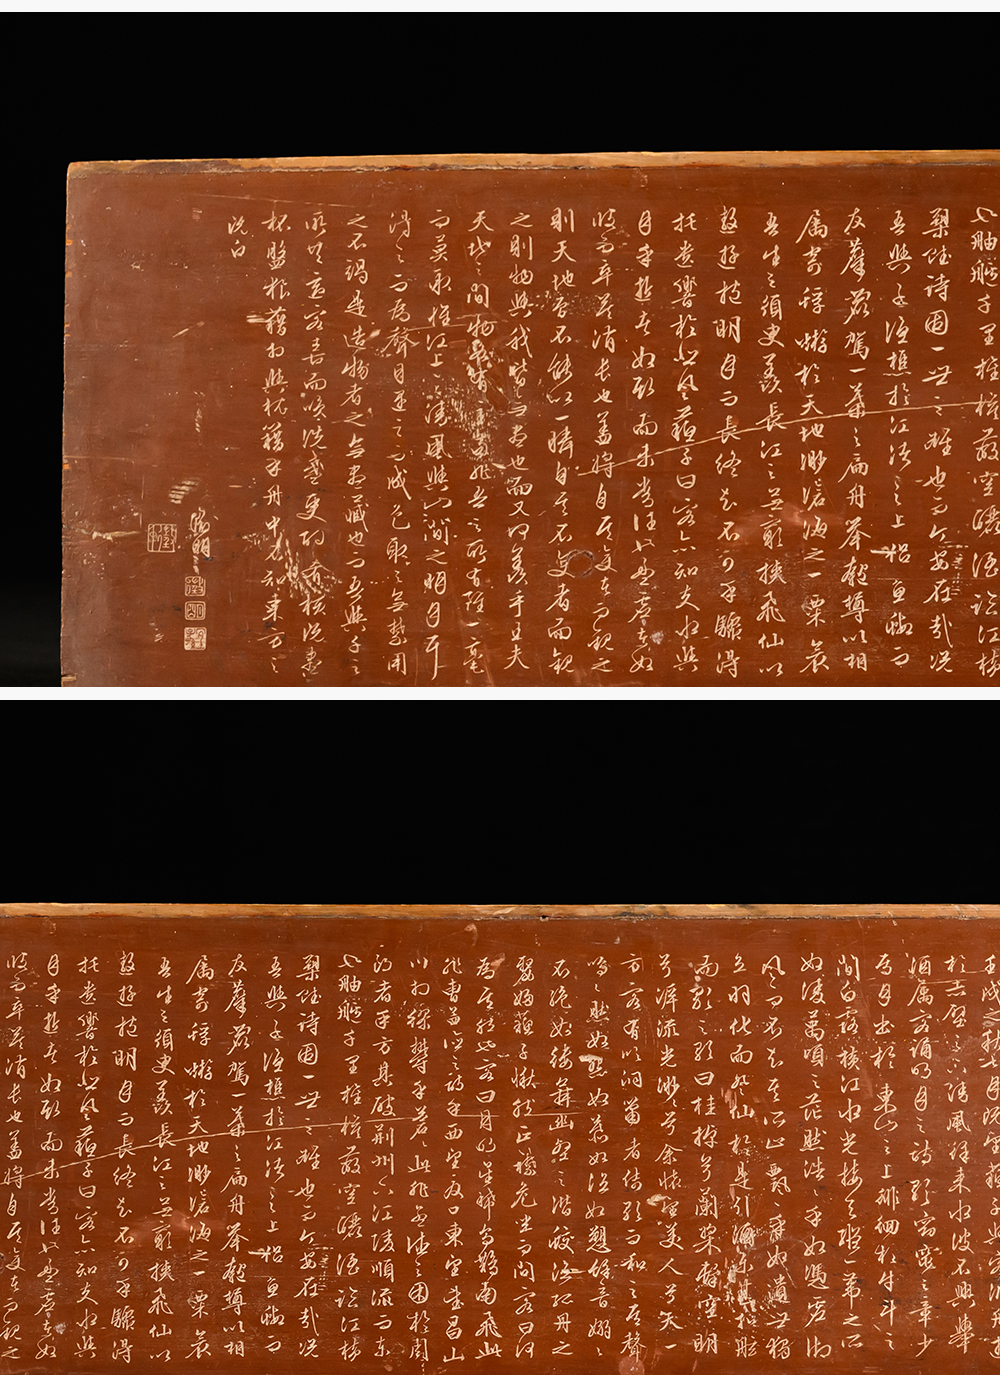 也舳艫千里旌旗蔽空釃酒臨江橫
槊賦詩固一世之雄也而今安在哉況
吾與子漁樵於江渚之上侶魚蝦而
友麋鹿駕一葉之扁舟舉匏樽以相
屬寄蜉蝣於天地渺滄海之一粟哀
吾生之須臾羨長江之無窮挾飛仙以
遨遊抱明月而長終知不可乎驟得
托遺響於悲風蘇子曰客亦知夫水與
月乎逝者如斯而未嘗往也盈虛者如
彼而卒莫消長也蓋將自其變者而觀之
則天地曾不能以一瞬自其不變者而觀
之則物與我皆無盡也而又何羨乎且夫
天地之間物各有主苟非吾之所有雖一毫
而莫取惟江上之清風與山間之明月耳
得之而為聲目遇之而成色取之無禁用
之不竭是造物者之無盡藏也而吾與子之
所共適客喜而笑洗盞更酌肴核既盡
杯盤狼藉相與枕藉乎舟中不知東方之
既白
陽明
壬戌之秋七月既望蘇子與客泛舟遊
於赤壁之下清風徐來水波不興舉
酒屬客誦明月之詩歌窈窕之章少
焉月出於東山之上徘徊於牛斗之
間白露橫江水光接天縱一葦之所
如凌萬頃之茫然浩浩乎如馮虛御
風而不知其所止飄飄乎如遺世獨
立羽化而登仙於是飲酒樂甚扣舷
而歌之歌曰桂棹兮蘭槳擊空明
兮泝流光渺渺兮余懷望美人兮天一
方客有吹洞簫者倚歌而和之其聲
嗚嗚然如怨如慕如泣如訴餘音嫋嫋
不絕如縷舞幽壑之潛蛟泣孤舟之
嫠婦蘇子愀然正襟危坐而問客曰何
為其然也客曰月明星稀烏鵲南飛此
非曹孟德之詩乎西望夏口東望武昌山
川相繆鬱乎蒼蒼此非孟德之困於周
郎者乎方其破荊州下江陵順流而東
也舳艫千里旌旗蔽空釃酒臨江橫
槊賦詩固一世之雄也而今安在哉況
吾與子漁樵於江渚之上侶魚蝦而
友麋鹿駕一葉之扁舟舉匏樽以相
屬寄蜉蝣於天地渺滄海之一粟哀
吾生之須臾羨長江之無窮挾飛仙以
遨遊抱明月而長終知不可乎驟得
托遺響於悲風蘇子曰客亦知夫水與
月乎逝者如斯而未嘗往也盈虛者如
彼而卒莫消長也蓋將自其變者而觀之